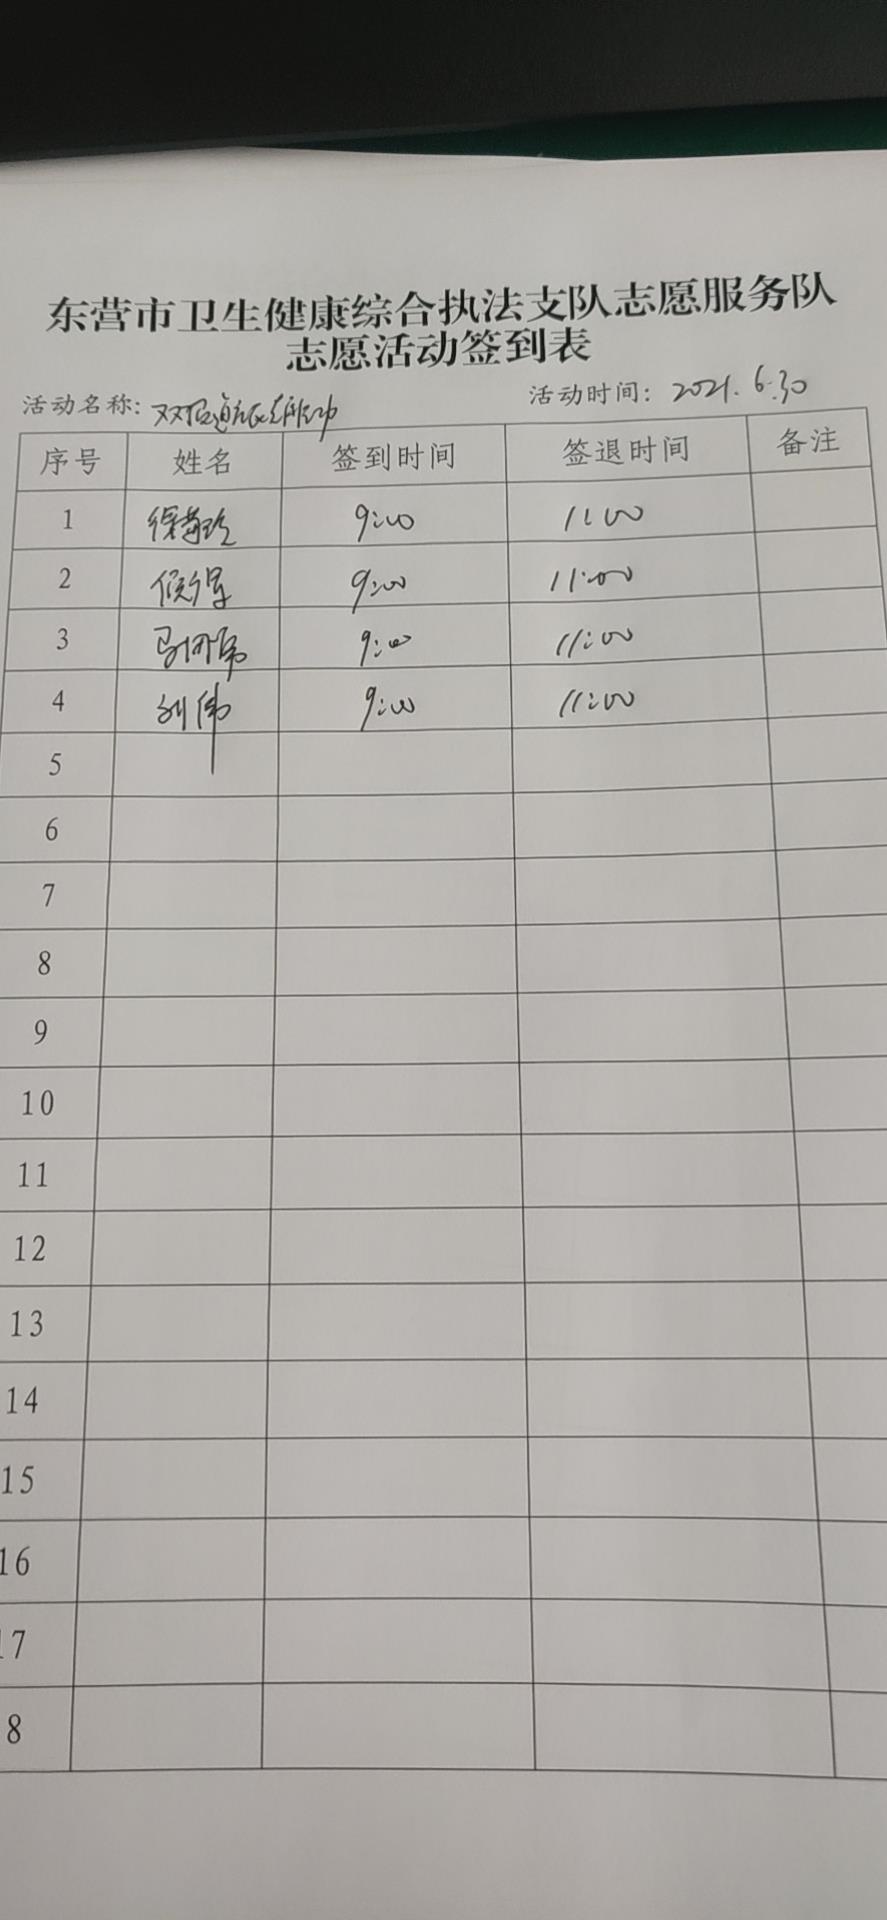 东营市卫生健康综合执法支队志愿服务队
志愿活动签到表
活动名称: 活动时间: 2021.6.30
序号 姓名 签到时间 签退时间 备注
1 9:00 11:00
2 9:00 11:00
3 9:00 11:00
4 刘伟 9:00 11:00
5
6
7
8
9
10
11
12
13
14
15
16
17
8